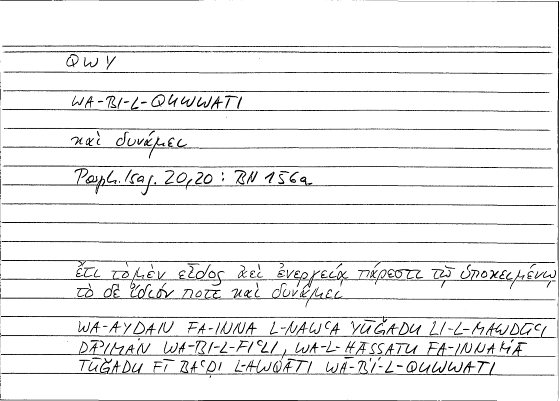 QWY
WA-BI-L-QUWWATI
καὶ δυνάμει
Porph. Isag. 20,20 : BN 156a
ἔτι τὸ μὲν εἶδος ἀεὶ ἐνεργείᾳ πάρεστι τῷ ὑποκειμένῳ
τὸ δὲ ἴδιόν ποτε καὶ δυνάμει
WA-AYḌAN FA-INNA L-NAWʿA YŪǦADU LI-L-MAWḌŪʿI
DĀʾIMAN WA-BI-L-FIʿLI, WA-L-ḪĀṢṢATU FA-INNAMĀ
TŪǦADU FĪ BAʿḌI L-AWQĀTI WA-BI-L-QUWWATI